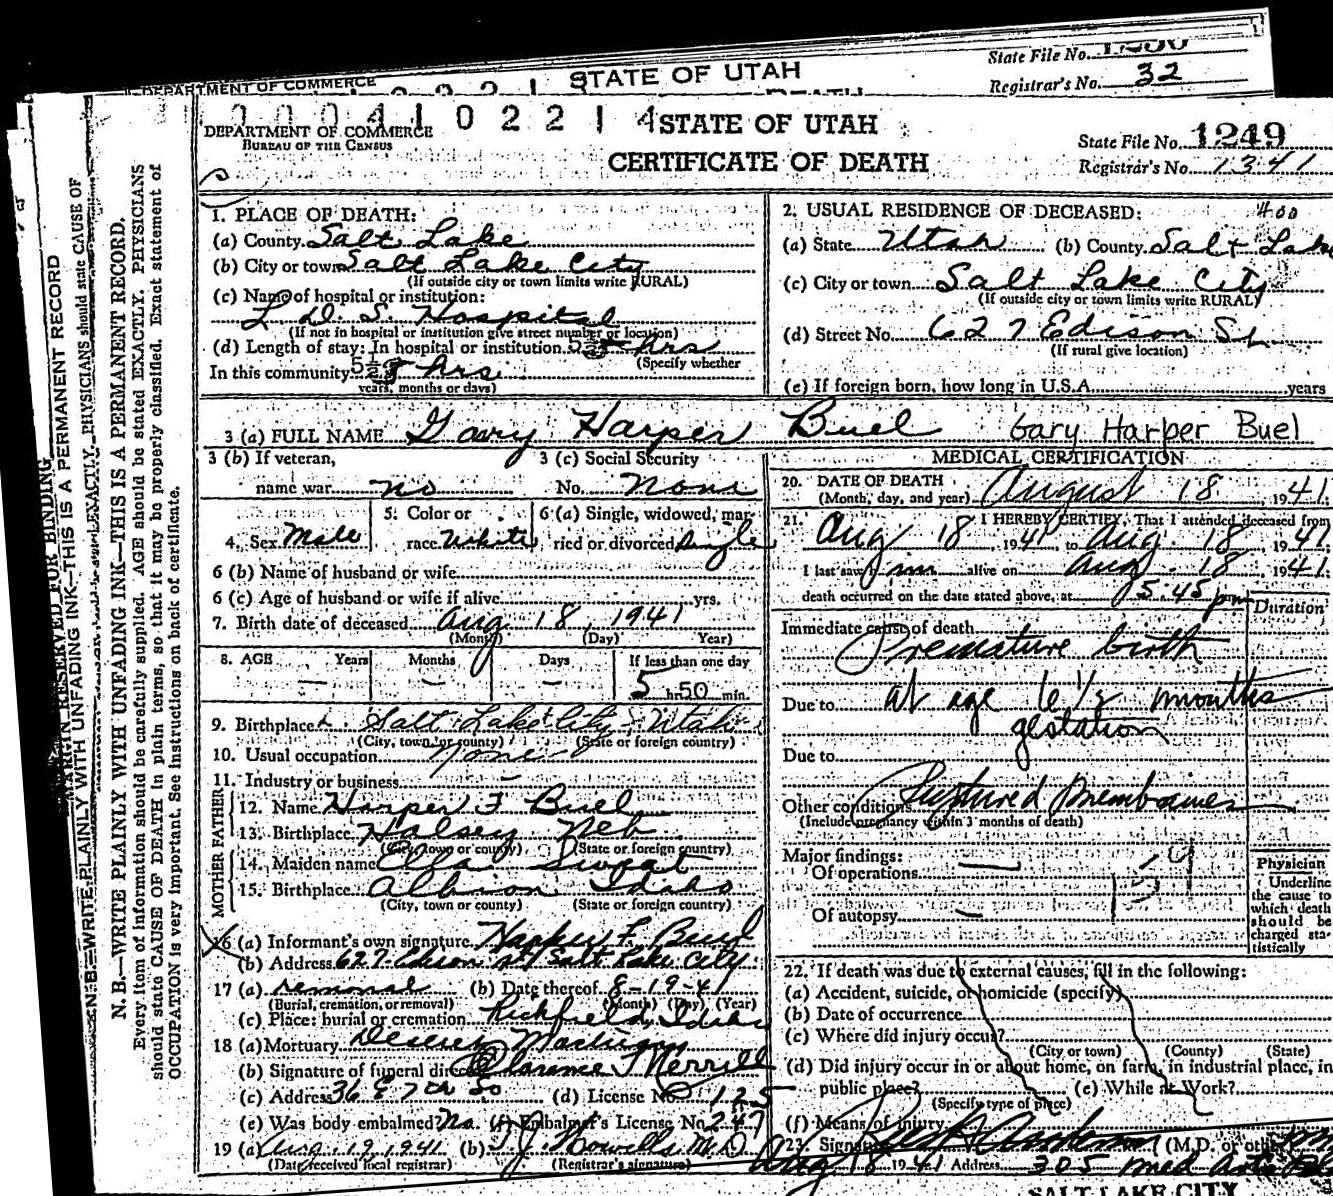 DEPARTMENT OF COMMERCE
STATE OF UTAH
State File No.
Registrar's No. 32
0 0 0 4 1 0 2 2 1 4
DEPARTMENT OF COMMERCE
BUREAU OF THE CENSUS
STATE OF UTAH
CERTIFICATE OF DEATH
State File No. 1249
Registrar's No. 1341
MARGIN RESERVED FOR BINDING
N. B.—WRITE PLAINLY WITH UNFADING INK—THIS IS A PERMANENT RECORD.
Every item of information should be carefully supplied. AGE should be stated EXACTLY. PHYSICIANS
should state CAUSE OF DEATH in plain terms, so that it may be properly classified. Exact statement of
OCCUPATION is very important. See instructions on back of certificate.
1. PLACE OF DEATH:
(a) County Salt Lake
(b) City or town Salt Lake City
(If outside city or town limits write RURAL)
(c) Name of hospital or institution:
L. D. S. Hospital
(If not in hospital or institution give street number or location)
(d) Length of stay: In hospital or institution hrs
(Specify whether
In this community hrs.
years, months or days)
2. USUAL RESIDENCE OF DECEASED: 400
(a) State Utah (b) County Salt Lake
(c) City or town Salt Lake City
(If outside city or town limits write RURAL)
(d) Street No. 627 Edison St
(If rural give location)
(e) If foreign born, how long in U.S.A. years
3 (a) FULL NAME Gary Harper Buel Gary Harper Buel
3 (b) If veteran, name war no
3 (c) Social Security No. None
4. Sex Male
5. Color or race White
6 (a) Single, widowed, married or divorced Single
6 (b) Name of husband or wife
6 (c) Age of husband or wife if alive yrs.
7. Birth date of deceased Aug. 18, 1941
(Month) (Day) Year)
8. AGE Years Months Days If less than one day
— — — 5 hr 50 min.
9. Birthplace Salt Lake City, Utah
(City, town, or county) (State or foreign country)
10. Usual occupation None
11. Industry or business —
FATHER
12. Name Harper F Buel
13. Birthplace Halsey Neb
(City, town or county) (State or foreign country)
MOTHER
14. Maiden name Ella Sweat
15. Birthplace Albion Idaho
(City, town or county) (State or foreign country)
16 (a) Informant's own signature Harper F. Buel
(b) Address 627 Edison st Salt Lake City
17 (a) removal (b) Date thereof 8-19-41
(Burial, cremation, or removal) (Month) (Day) (Year)
(c) Place: burial or cremation Richfield, Idaho
18 (a) Mortuary Deseret Mortuary
(b) Signature of funeral director Clarence J Merrill
(c) Address 36 E 7th So (d) License No 125
(e) Was body embalmed No. (f) Embalmer's License No. 247
19 (a) Aug. 19, 1941 (b) T. J. Howells M.D.
(Date received local registrar) (Registrar's signature)
MEDICAL CERTIFICATION
20. DATE OF DEATH
(Month, day, and year) August 18 1941
21. I HEREBY CERTIFY, That I attended deceased from
Aug 18, 1941 to Aug. 18, 1941
I last saw him alive on Aug. 18, 1941.
death occurred on the date stated above, at 5:45 pm
Duration
Immediate cause of death
Premature birth
Due to at age 6 1/2 months
gestation
Due to
Other conditions Ruptured Membranes
(Include pregnancy within 3 months of death)
Major findings:
Of operations —
159
Of autopsy —
Physician
Underline
the cause to
which death
should be
charged sta-
tistically
22. If death was due to external causes, fill in the following:
(a) Accident, suicide, or homicide (specify)
(b) Date of occurrence
(c) Where did injury occur?
(City or town) (County) (State)
(d) Did injury occur in or about home, on farm, in industrial place, in
public place? (e) While at Work?
(Specify type of place)
(f) Means of injury
23. Signature Anderson (M.D. or other)
Aug 18 1941 Address 305 Med Arts
SALT LAKE CITY